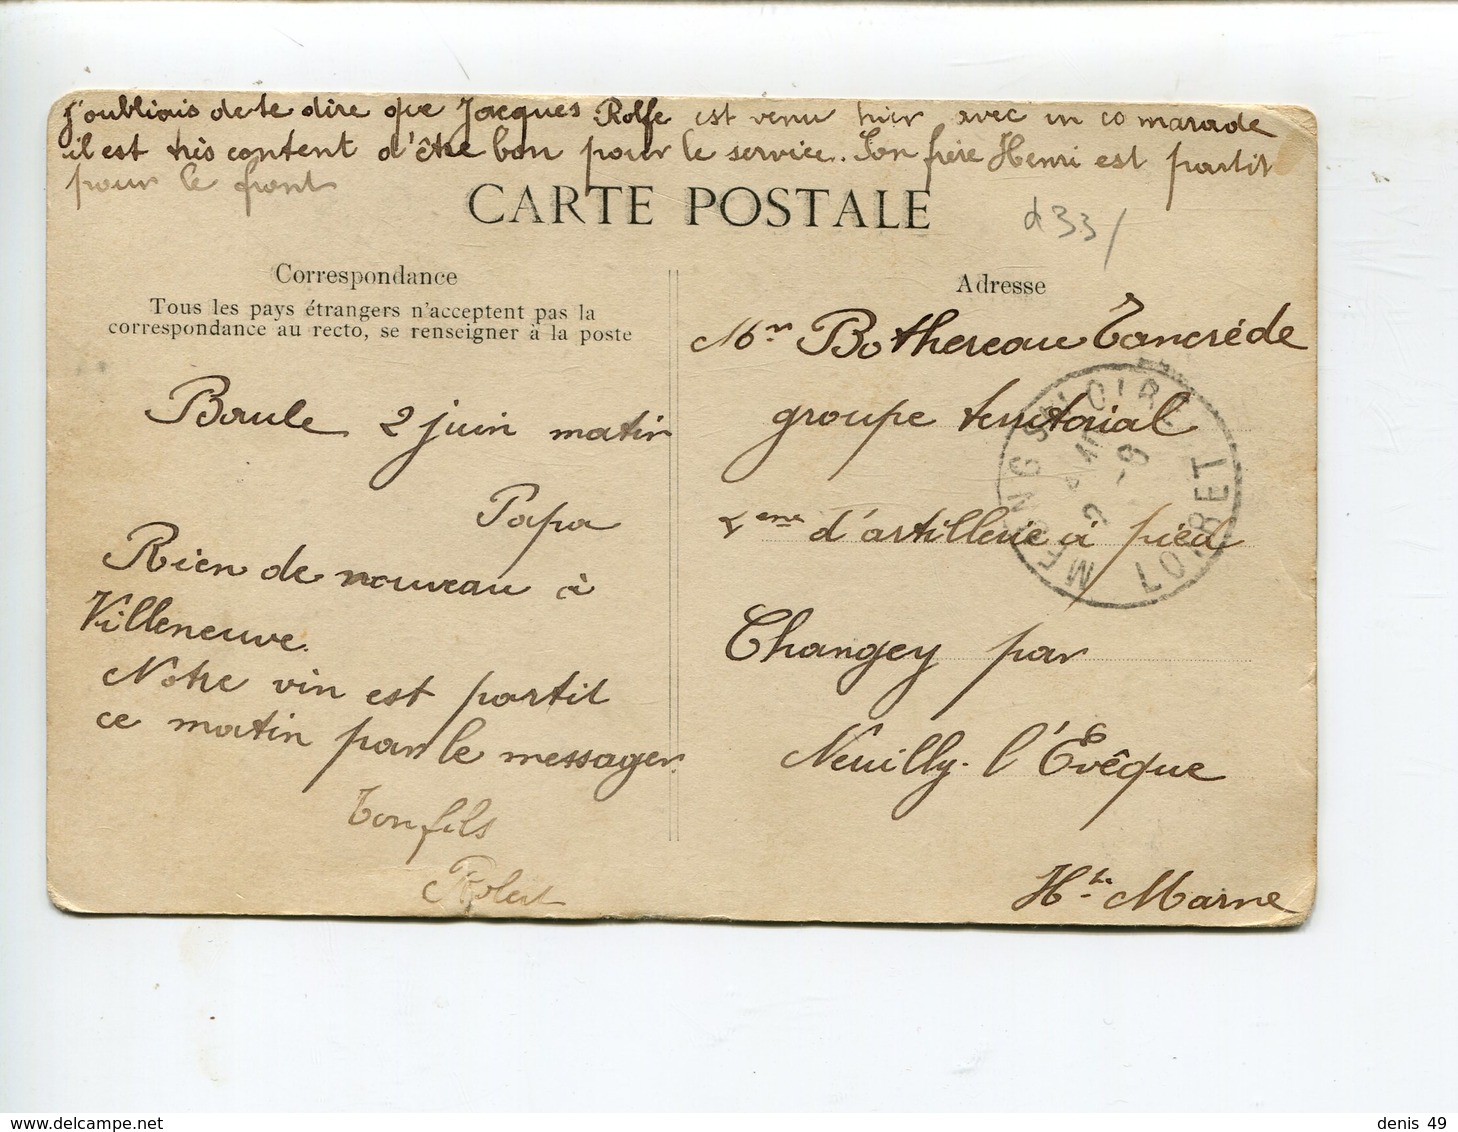 j'oubliais de te dire que Jacques Rolfe est venu hier avec un comarade
il est très content d'être bon pour le service. Son frère Henri est partit
pour le front
CARTE POSTALE
d 33/
Correspondance
Tous les pays étrangers n'acceptent pas la
correspondance au recto, se renseigner à la poste
Baule 2 juin matin
Papa
Rien de nouveau à
Villeneuve.
Notre vin est partit
ce matin par le messager
Ton fils
Robert
Adresse
Mr Bothereau Tancréde
groupe territorial
eme d'artillerie à pied
Changey par
Neuilly-l'Evêque
Hte Marne
MEUNG S LOIRE
2 -6
LOIRET
denis 49